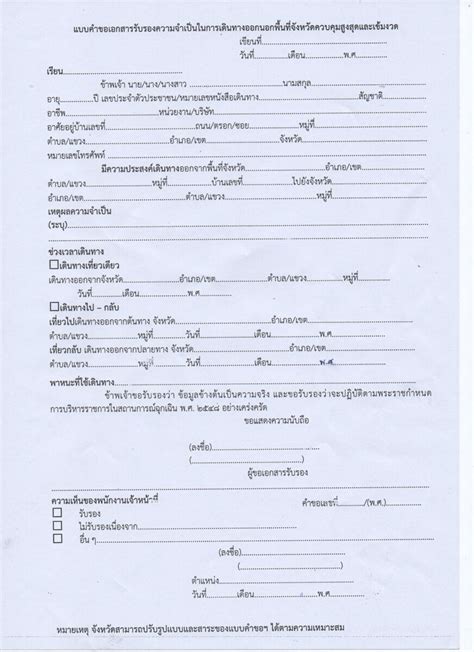 แบบคำขอเอกสารรับรองความจำเป็นในการเดินทางออกนอกพื้นที่จังหวัดควบคุมสูงสุดและเข้มงวด
เขียนที่..............................
วันที่............เดือน....................พ.ศ...........
เรียน........................................
ข้าพเจ้า นาย/นาง/นางสาว ........................................นามสกุล........................................
อายุ..........ปี เลขประจำตัวประชาชน/หมายเลขหนังสือเดินทาง..............................สัญชาติ....................
อาชีพ..............................หน่วยงาน/บริษัท........................................
อาศัยอยู่บ้านเลขที่....................ถนน/ตรอก/ซอย....................หมู่ที่....................
ตำบล/แขวง..............................อำเภอ/เขต..............................จังหวัด....................
หมายเลขโทรศัพท์..............................
มีความประสงค์เดินทางออกจากพื้นที่จังหวัด..............................อำเภอ/เขต....................
ตำบล/แขวง....................หมู่ที่..........บ้านเลขที่....................ไปยังจังหวัด....................
อำเภอ/เขต..............................ตำบล/แขวง..............................หมู่ที่..........
เหตุผลความจำเป็น
(ระบุ)............................................................
ช่วงเวลาเดินทาง
☐เดินทางเที่ยวเดียว
เดินทางออกจากจังหวัด....................อำเภอ/เขต....................ตำบล/แขวง....................หมู่ที่..........
วันที่..........เดือน....................พ.ศ...........
☐เดินทางไป – กลับ
เที่ยวไปเดินทางออกจากต้นทาง จังหวัด..............................อำเภอ/เขต....................
ตำบล/แขวง....................หมู่ที่..........วันที่..........เดือน....................พ.ศ...........
เที่ยวกลับ เดินทางออกจากปลายทาง จังหวัด..............................อำเภอ/เขต....................
ตำบล/แขวง....................หมู่ที่..........วันที่..........เดือน....................พ.ศ...........
พาหนะที่ใช้เดินทาง........................................
ข้าพเจ้าขอรับรองว่า ข้อมูลข้างต้นเป็นความจริง และขอรับรองว่าจะปฏิบัติตามพระราชกำหนด
การบริหารราชการในสถานการณ์ฉุกเฉิน พ.ศ. ๒๕๔๘ อย่างเคร่งครัด
ขอแสดงความนับถือ
(ลงชื่อ)..............................
(..............................)
ผู้ขอเอกสารรับรอง
ความเห็นของพนักงานเจ้าหน้าที่
คำขอเลขที่............/(พ.ศ.)..........
☐ รับรอง
☐ ไม่รับรองเนื่องจาก........................................
☐ อื่น ๆ........................................
(ลงชื่อ)..............................
(..............................)
ตำแหน่ง..............................
วันที่..........เดือน....................พ.ศ...........
หมายเหตุ จังหวัดสามารถปรับรูปแบบและสาระของแบบคำขอฯ ได้ตามความเหมาะสม